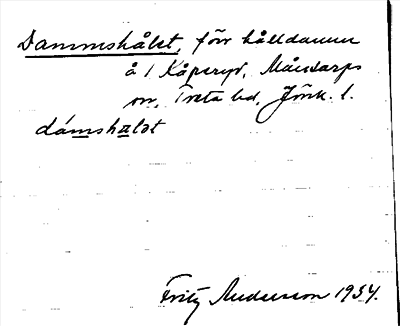 Dammshålet, förr hålldamm
å 1 Kåperyd, Månsarps
sn, Tveta hd, Jönk. l.
dámshalət
Fritz Anderson 1934.